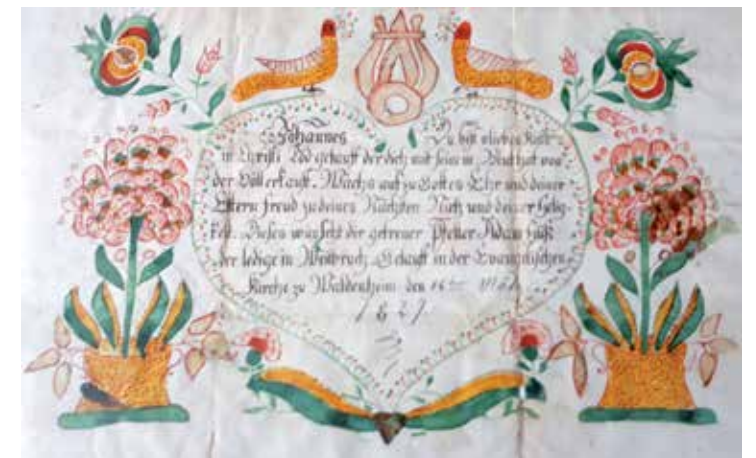 Johannes Du bist o liebes Kind
in Christi Tod getauft der dich mit seinem Blut hat von
der Höll erkauft. Wachs auf zu Gottes Ehr und deiner
Eltern freud zu deines Nächsten Nutz und deiner Selig-
keit. Dieses wünscht dir getreuer Pfetter Adam
der ledige in Getauft in der Evangelischen
Kirche zu den 16ten
1827